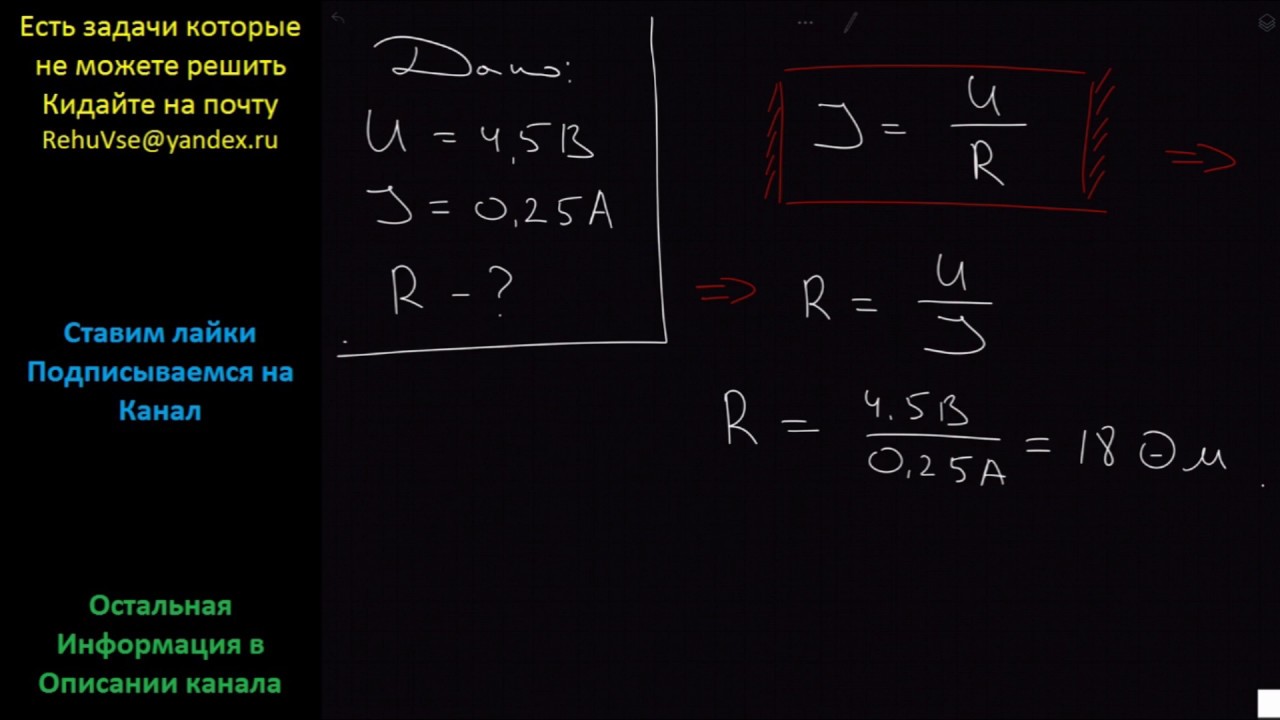 Есть задачи которые
не можете решить
Кидайте на почту
RehuVse@yandex.ru
Ставим лайки
Подписываемся на
Канал
Остальная
Информация в
Описании канала
Дано:
U = 4,5В
J = 0,25А
R - ?
J = U/R ⇒
⇒ R = U/J
R = 4.5В/0,25А = 18 Ом